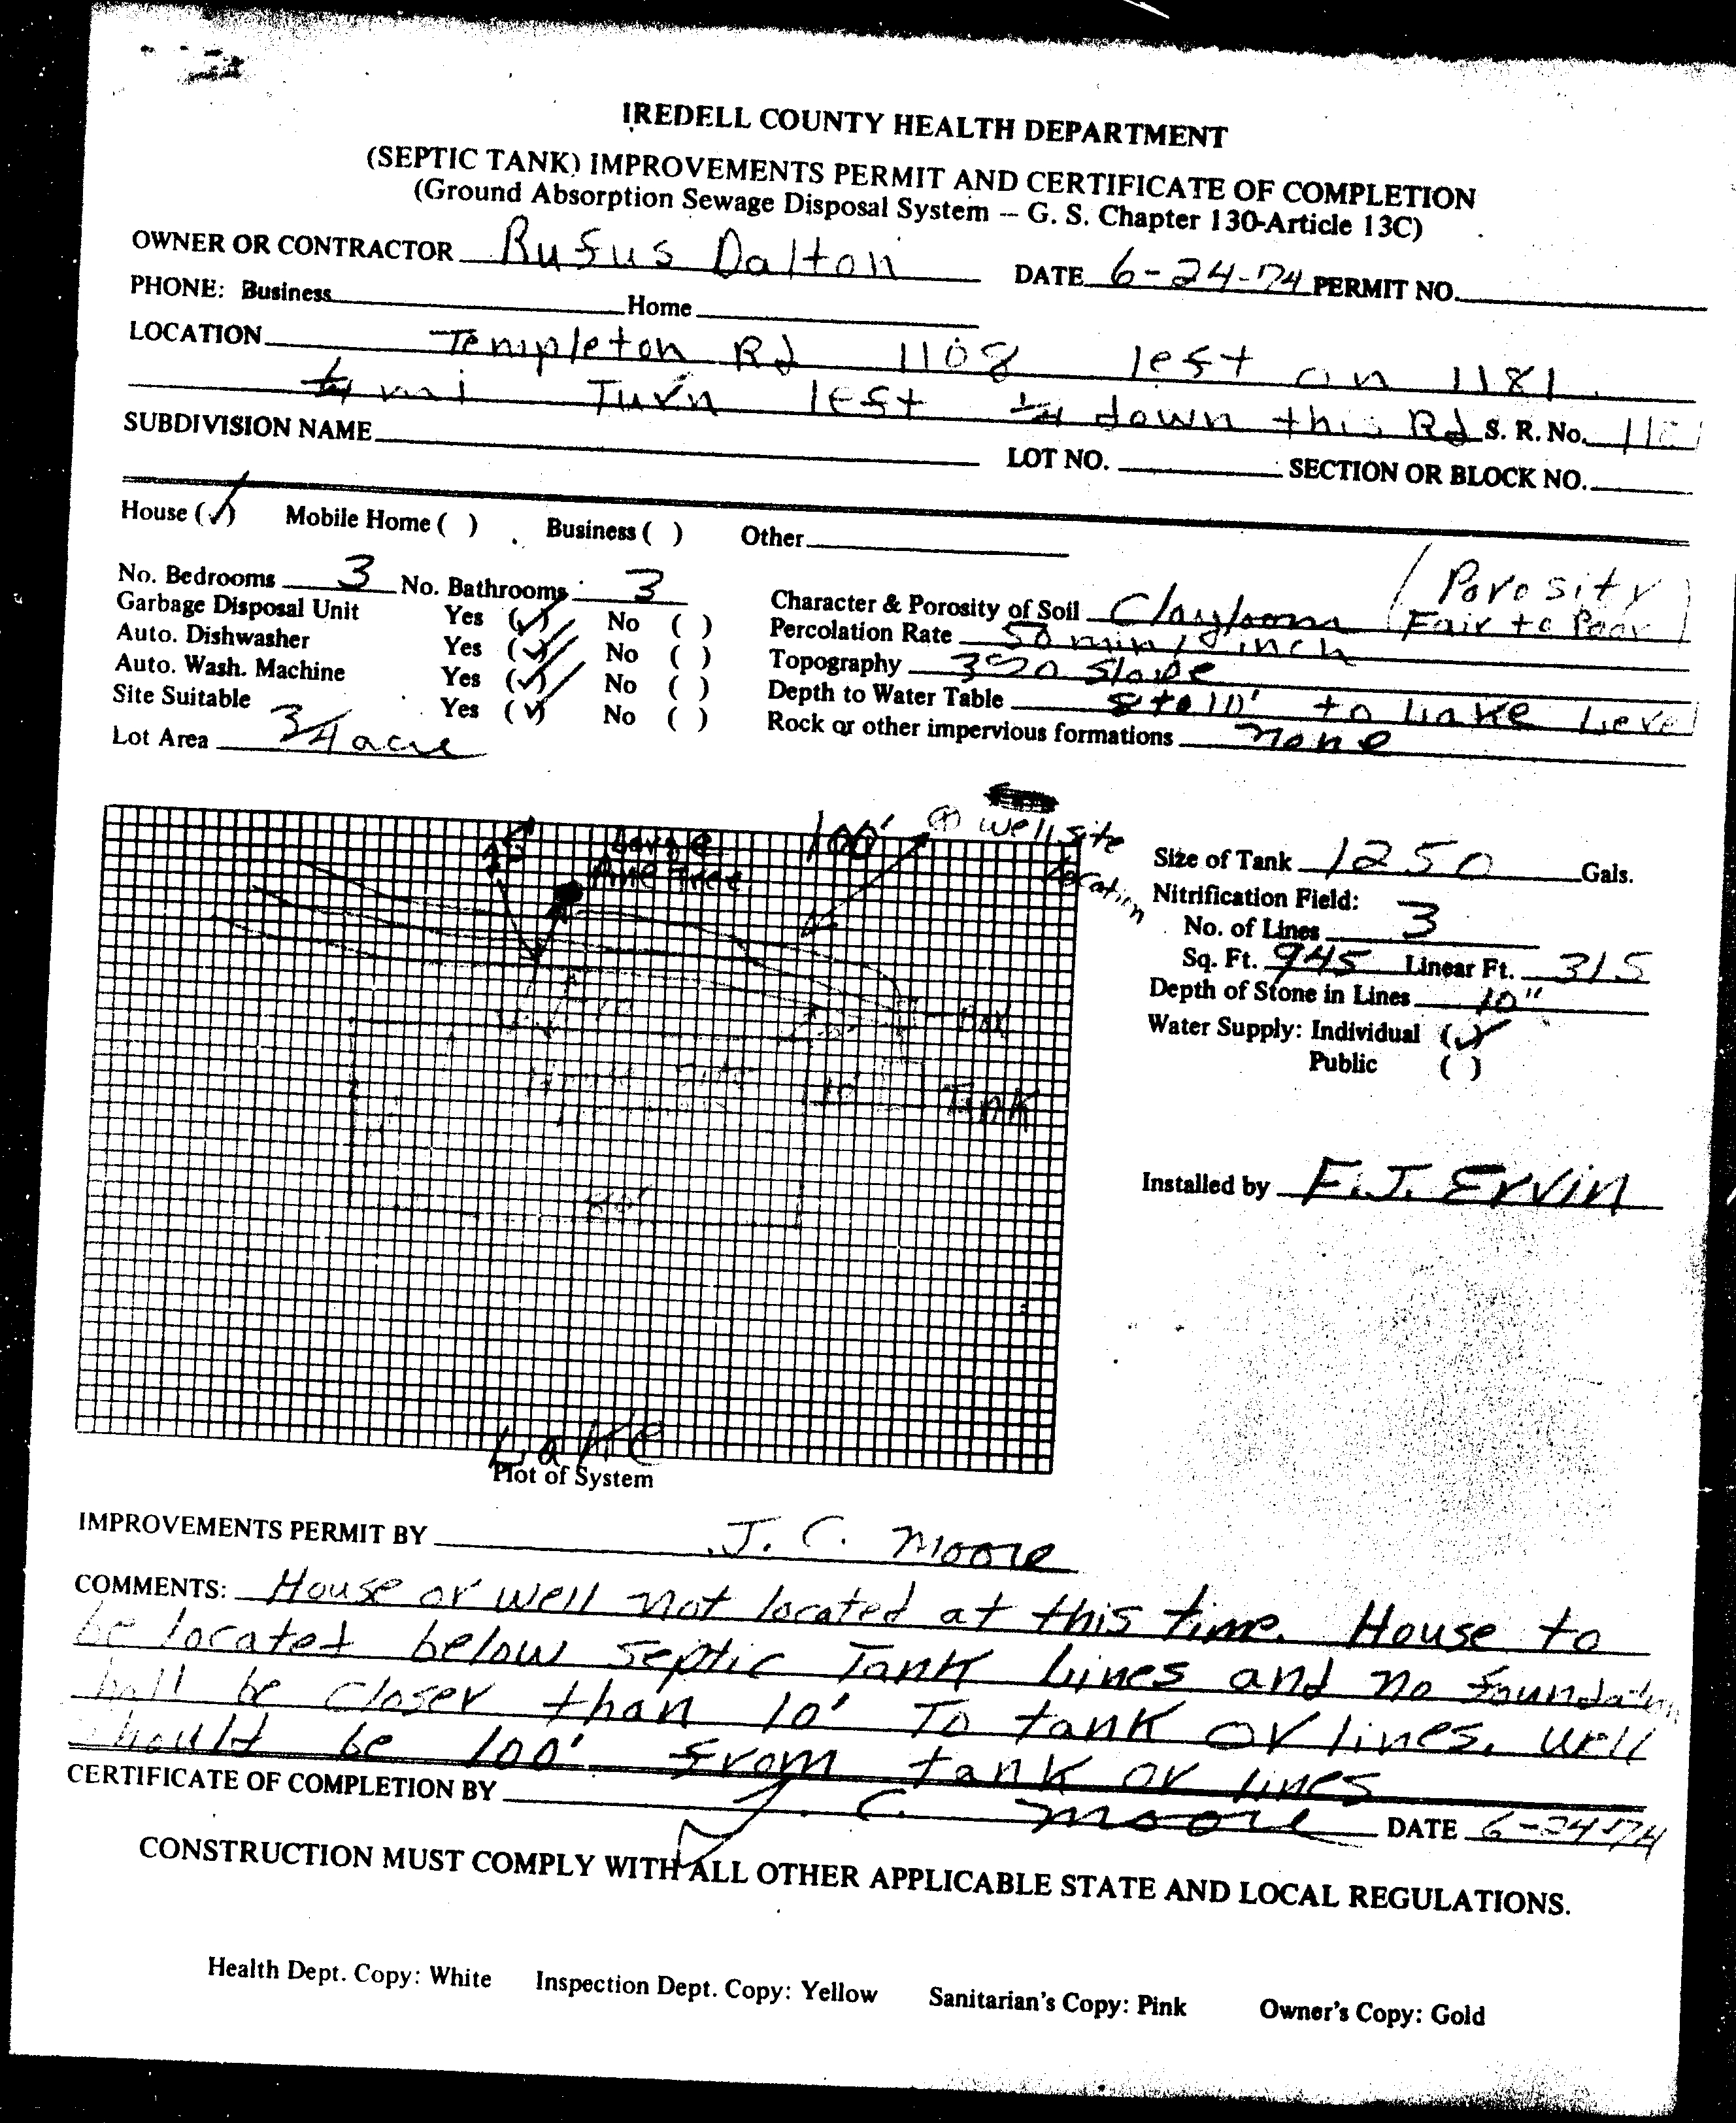 IREDELL COUNTY HEALTH DEPARTMENT
(SEPTIC TANK) IMPROVEMENTS PERMIT AND CERTIFICATE OF COMPLETION
(Ground Absorption Sewage Disposal System – G. S. Chapter 130-Article 13C)
OWNER OR CONTRACTOR Rufus Dalton DATE 6-24-74 PERMIT NO.
PHONE: Business Home
LOCATION Templeton Rd 1108 left on 1181
1/4 mi Turn left 1/4 down this Rd S. R. No.
SUBDIVISION NAME LOT NO. SECTION OR BLOCK NO.
House (✓) Mobile Home ( ) Business ( ) Other
No. Bedrooms 3 No. Bathrooms 3
Garbage Disposal Unit Yes (✓) No ( )
Auto. Dishwasher Yes (✓) No ( )
Auto. Wash. Machine Yes (✓) No ( )
Site Suitable Yes (✓) No ( )
Lot Area 3/4 acre
Character & Porosity of Soil Clayloam (Porosity Fair to Poor)
Percolation Rate 50 min/inch
Topography 3% slope
Depth to Water Table 8 to 10' to Lake Level
Rock or other impervious formations none
Large
Pine Tree
100'
well site
location
Box
10'
Tank
Lake
Plot of System
Size of Tank 1250 Gals.
Nitrification Field:
No. of Lines 3
Sq. Ft. 945 Linear Ft. 315
Depth of Stone in Lines 10"
Water Supply: Individual (✓)
Public ( )
Installed by F.J. Ervin
IMPROVEMENTS PERMIT BY J. C. Moore
COMMENTS: House or well not located at this time. House to
be located below septic Tank Lines and no foundation
shall be closer than 10' To tank or lines. Well
should be 100' from tank or lines
CERTIFICATE OF COMPLETION BY J. C. Moore DATE 6-24-74
CONSTRUCTION MUST COMPLY WITH ALL OTHER APPLICABLE STATE AND LOCAL REGULATIONS.
Health Dept. Copy: White Inspection Dept. Copy: Yellow Sanitarian's Copy: Pink Owner's Copy: Gold